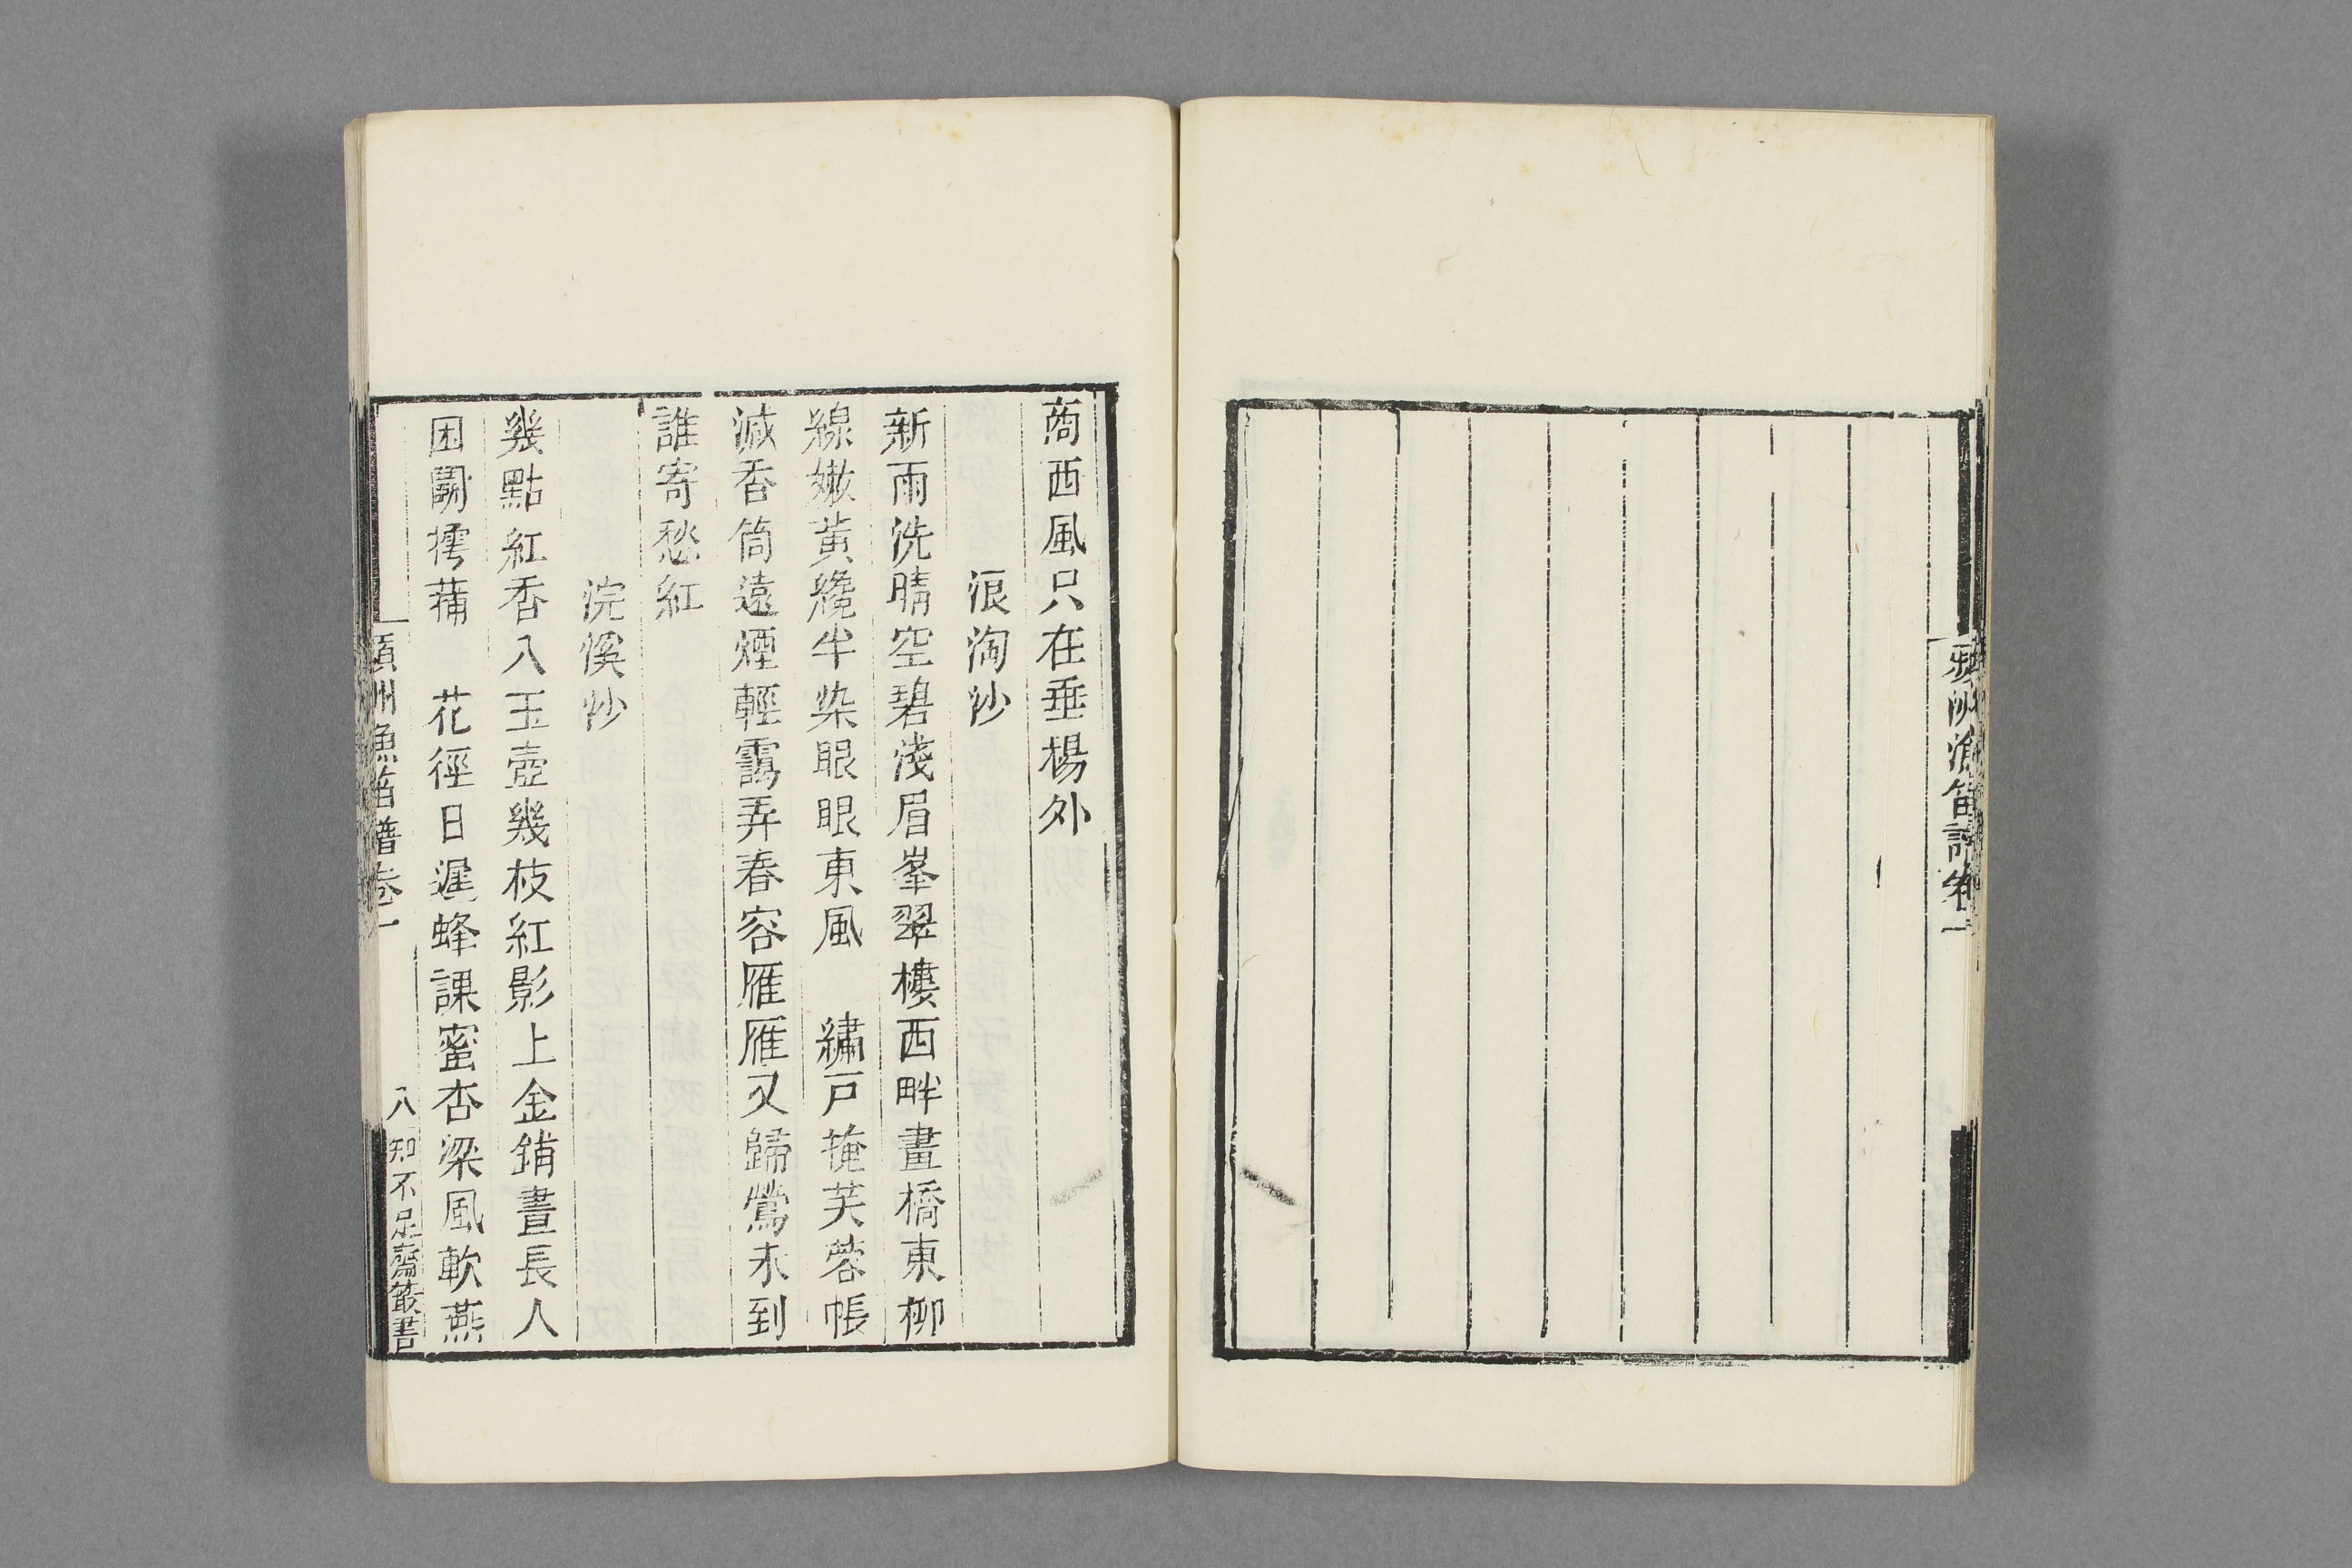 蘋洲漁笛譜卷一
商西風只在垂楊外
浪淘沙
新雨洗晴空碧淺眉峯翠樓西畔畫橋東柳
線嫩黃纔半染眼眼東風　繡戶掩芙蓉帳
減香筒遠煙輕靄弄春容雁雁又歸鶯未到
誰寄愁紅
浣溪沙
幾點紅香入玉壺幾枝紅影上金鋪晝長人
困鬬摴蒱　花徑日遲蜂課蜜杏梁風軟燕
蘋洲漁笛譜卷一
八
知不足齋叢書